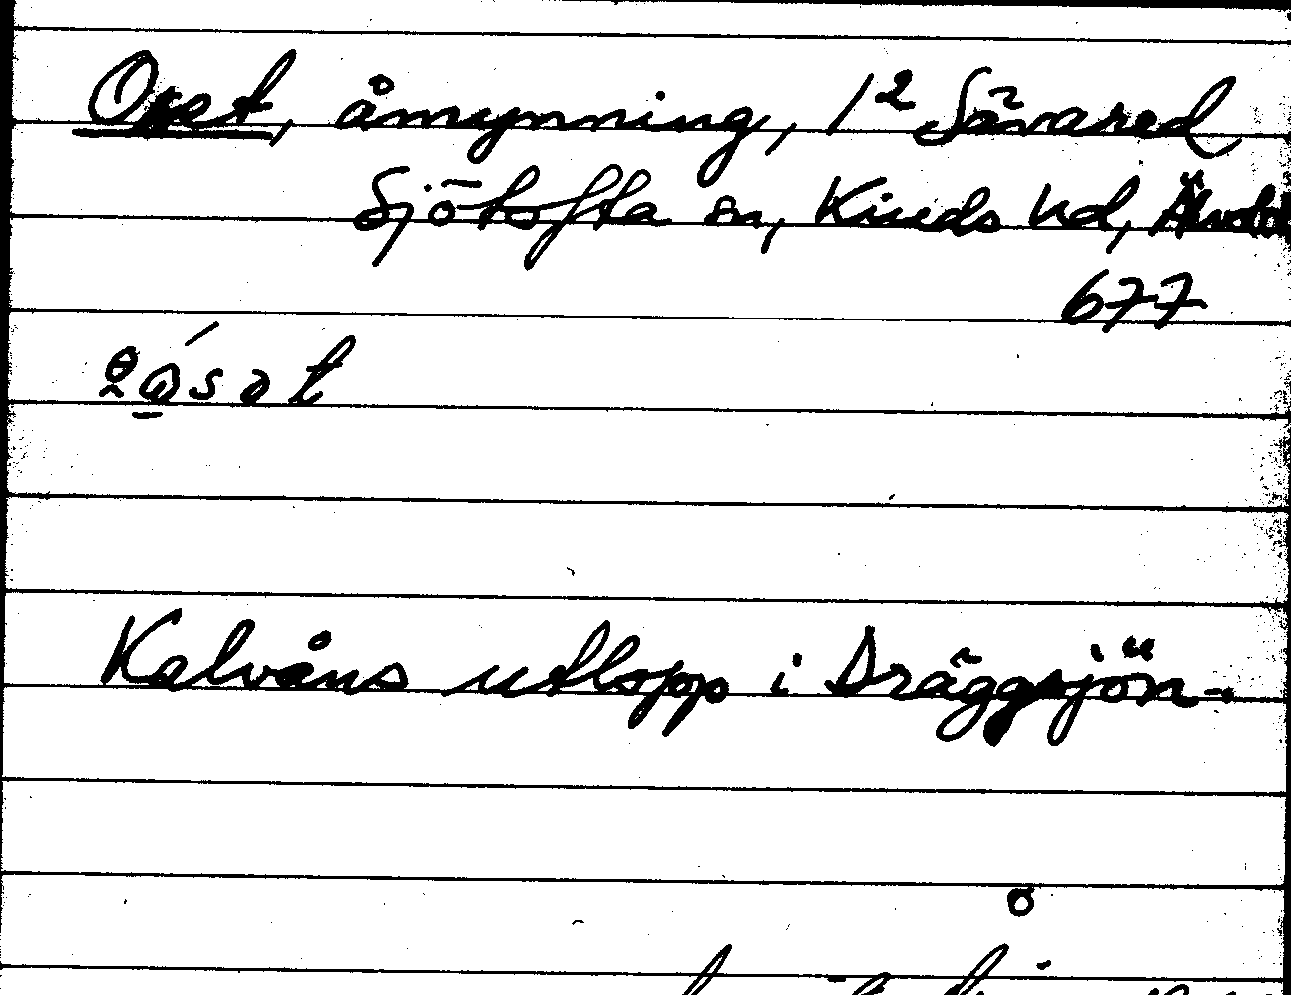 Oset, åmynning, 1² Sävared
Sjötofta sn, Kinds hd, Älvsb
677
Kalvåns utlopp i Dräggsjön.